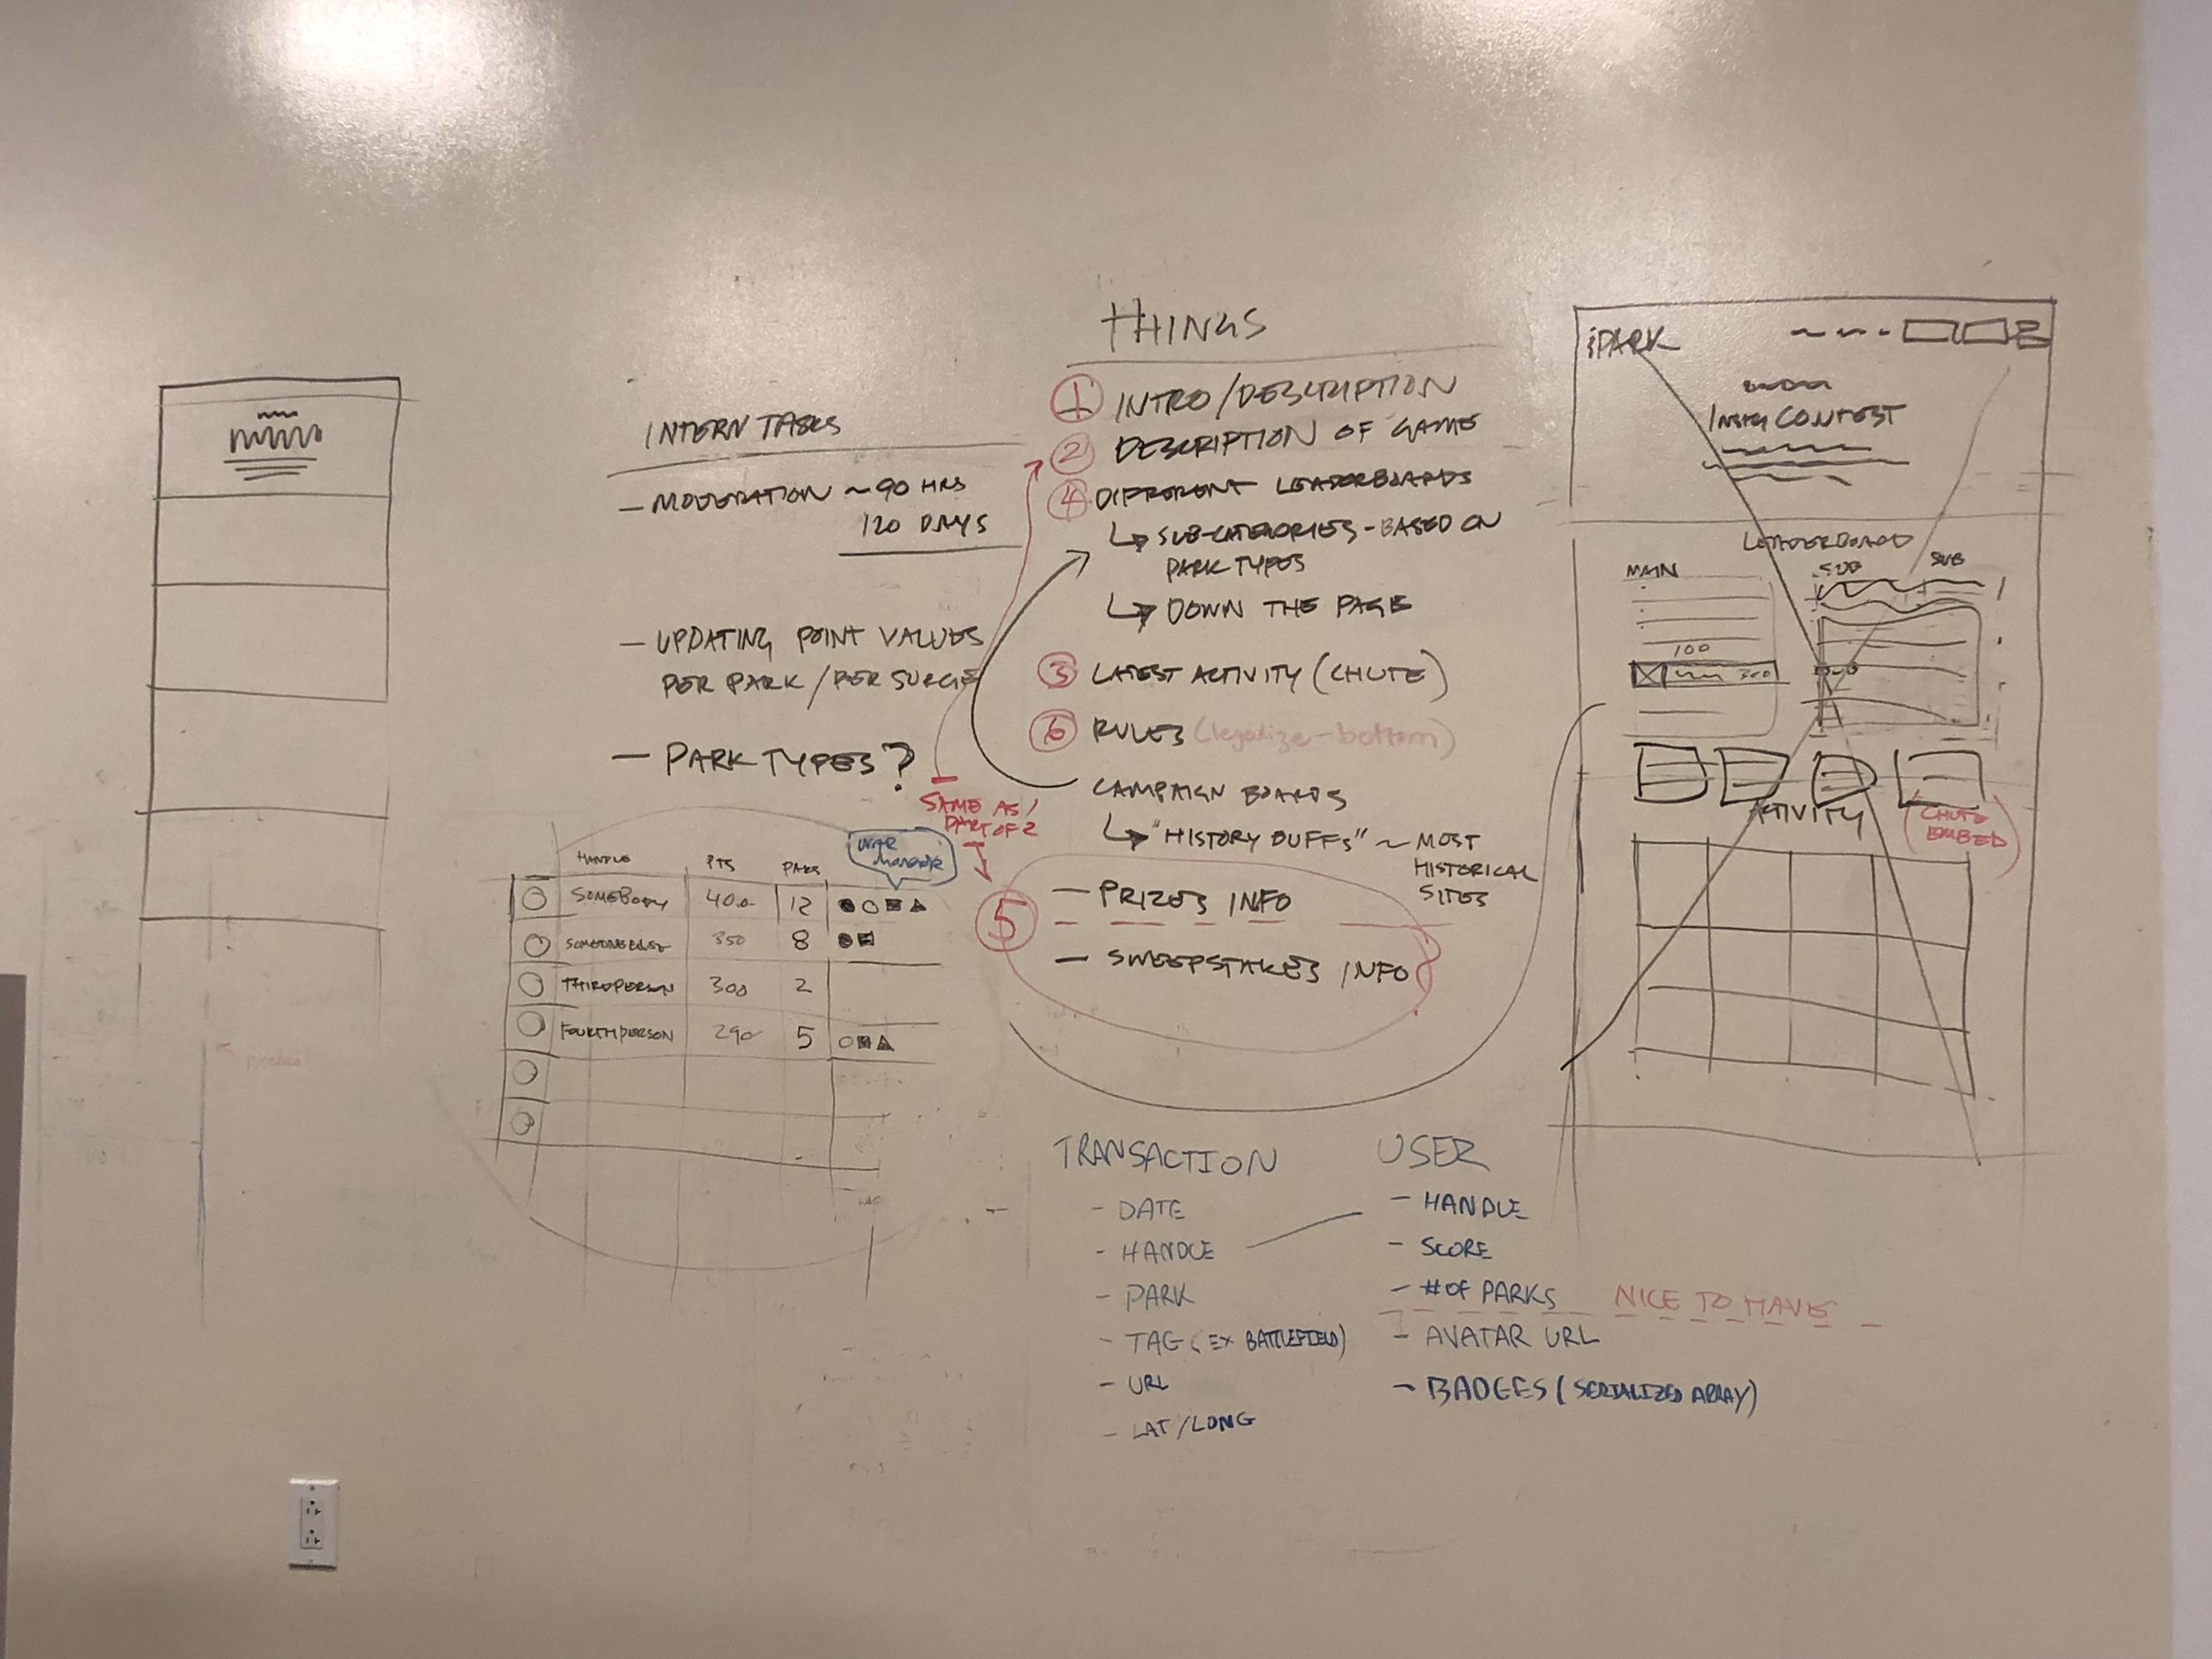 INTERN TASKS
— MODERATION ~ 90 HRS
120 DAYS
— UPDATING POINT VALUES
PER PARK / PER SURGE
— PARK TYPES?
SAME AS /
PART OF 2
HANDLE PTS PARKS
SOMEBODY 400 12
SOMEONE ELSE 350 8
THIRDPERSON 300 2
FOURTHPERSON 290 5
needed
THINGS
1 INTRO/DESCRIPTION
2 DESCRIPTION OF GAME
4 DIFFERENT LEADERBOARDS
↳ SUB-CATEGORIES - BASED ON
PARK TYPES
↳ DOWN THE PAGE
3 LATEST ACTIVITY (CHUTE)
6 RULES (legalize-bottom)
CAMPAIGN BOARDS
↳ "HISTORY BUFFS" ~ MOST
HISTORICAL
SITES
5
— PRIZES INFO
— SWEEPSTAKES INFO
TRANSACTION
- DATE
- HANDLE
- PARK
- TAG (EX BATTLEFIELD)
- URL
- LAT/LONG
USER
- HANDLE
- SCORE
- # OF PARKS
NICE TO HAVE
- AVATAR URL
- BADGES (SERIALIZED ARRAY)
iPARK
INSTA CONTEST
LEADERBOARD
MAIN SUB SUB
100
300
ACTIVITY
(CHUTE
EMBED)